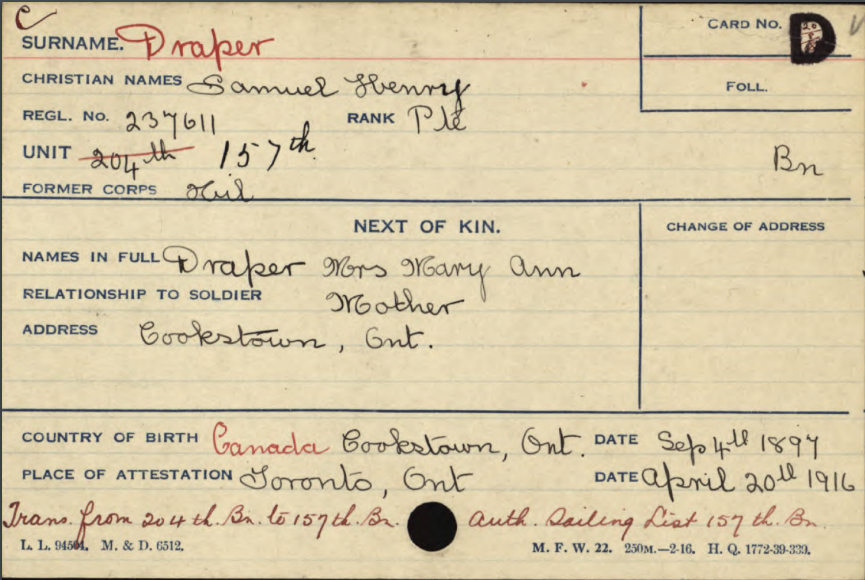 C
SURNAME. Draper CARD NO. D
CHRISTIAN NAMES Samuel Henry FOLL.
REGL. No. 237611 RANK Pte
UNIT 204th 157th. Bn
FORMER CORPS Nil
NEXT OF KIN. CHANGE OF ADDRESS
NAMES IN FULL Draper Mrs Mary Ann
RELATIONSHIP TO SOLDIER Mother
ADDRESS Cookstown, Ont.
COUNTRY OF BIRTH Canada Cookstown, Ont. DATE Sep 4th 1897
PLACE OF ATTESTATION Toronto, Ont DATE April 20th 1916
Trans. from 204th. Bn. to 157th. Bn. Auth. Sailing List 157th. Bn.
L. L. 94504. M. & D. 6512. M. F. W. 22. 250M.—2-16. H. Q. 1772-39-339.